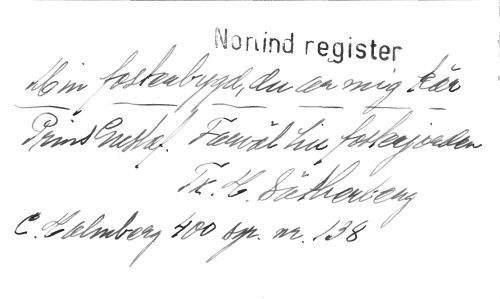 Nonind register
Min fosterbygd, du är mig kär
Prins Gustaf. Farväl till fosterjorden
Tx. H. Sätherberg
C. Holmberg 400 sgr. nr. 138